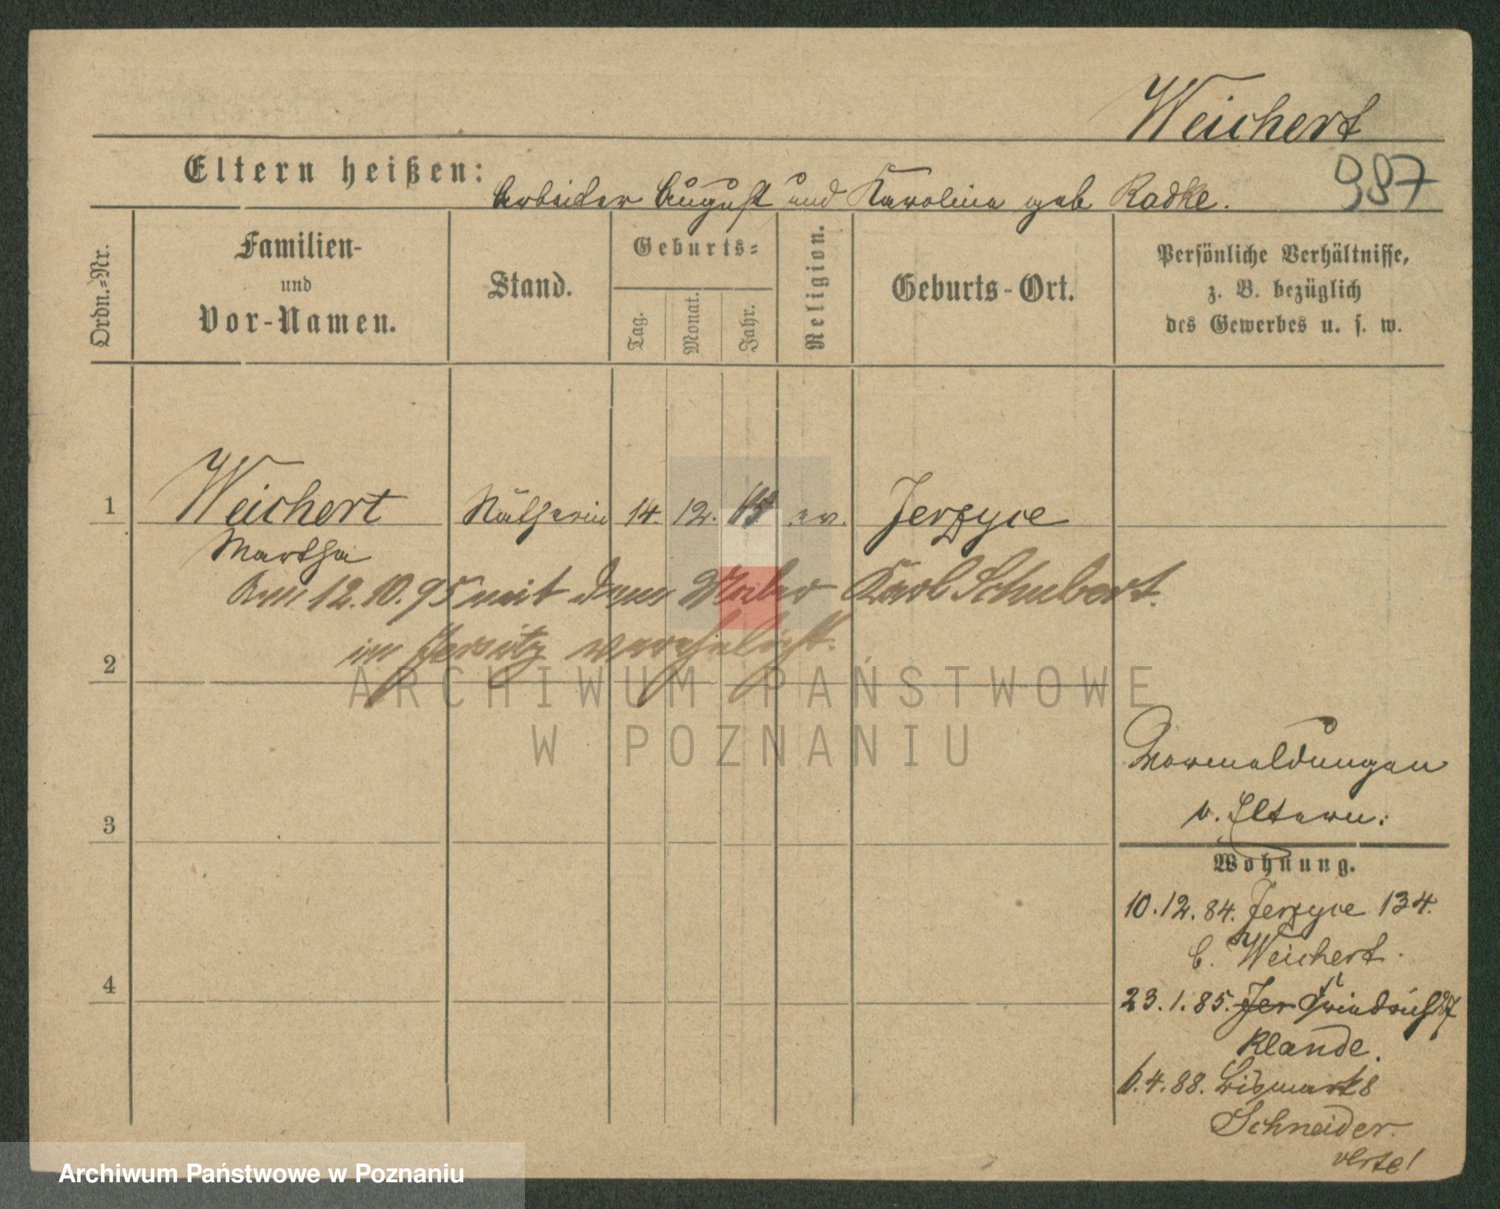 Weichert
987
Eltern heißen: Arbeiter August und Karolina geb Radke.
Ordn.=Nr.
Familien- und Vor-Namen.
Stand.
Geburts=
Tag.
Monat.
Jahr.
Religion.
Geburts-Ort.
Persönliche Verhältnisse,
z. B. bezüglich
des Gewerbes u. s. w.
1 Weichert Nätherin 14. 12. ev. Jerzyce
Martha
Am 12.10.95 mit dem Maler Karl Schubert
in Jersitz verehelicht.
2
3
4
Vormeldungen
v. Eltern.
Wohnung.
10.12.84. Jerzyce 134.
b. Weichert.
23.1.85. Jer Friedrichstr
Klande.
6.4.88. Bismarks
Schneider.
verte!
ARCHIWUM PAŃSTWOWE
W POZNANIU
Archiwum Państwowe w Poznaniu